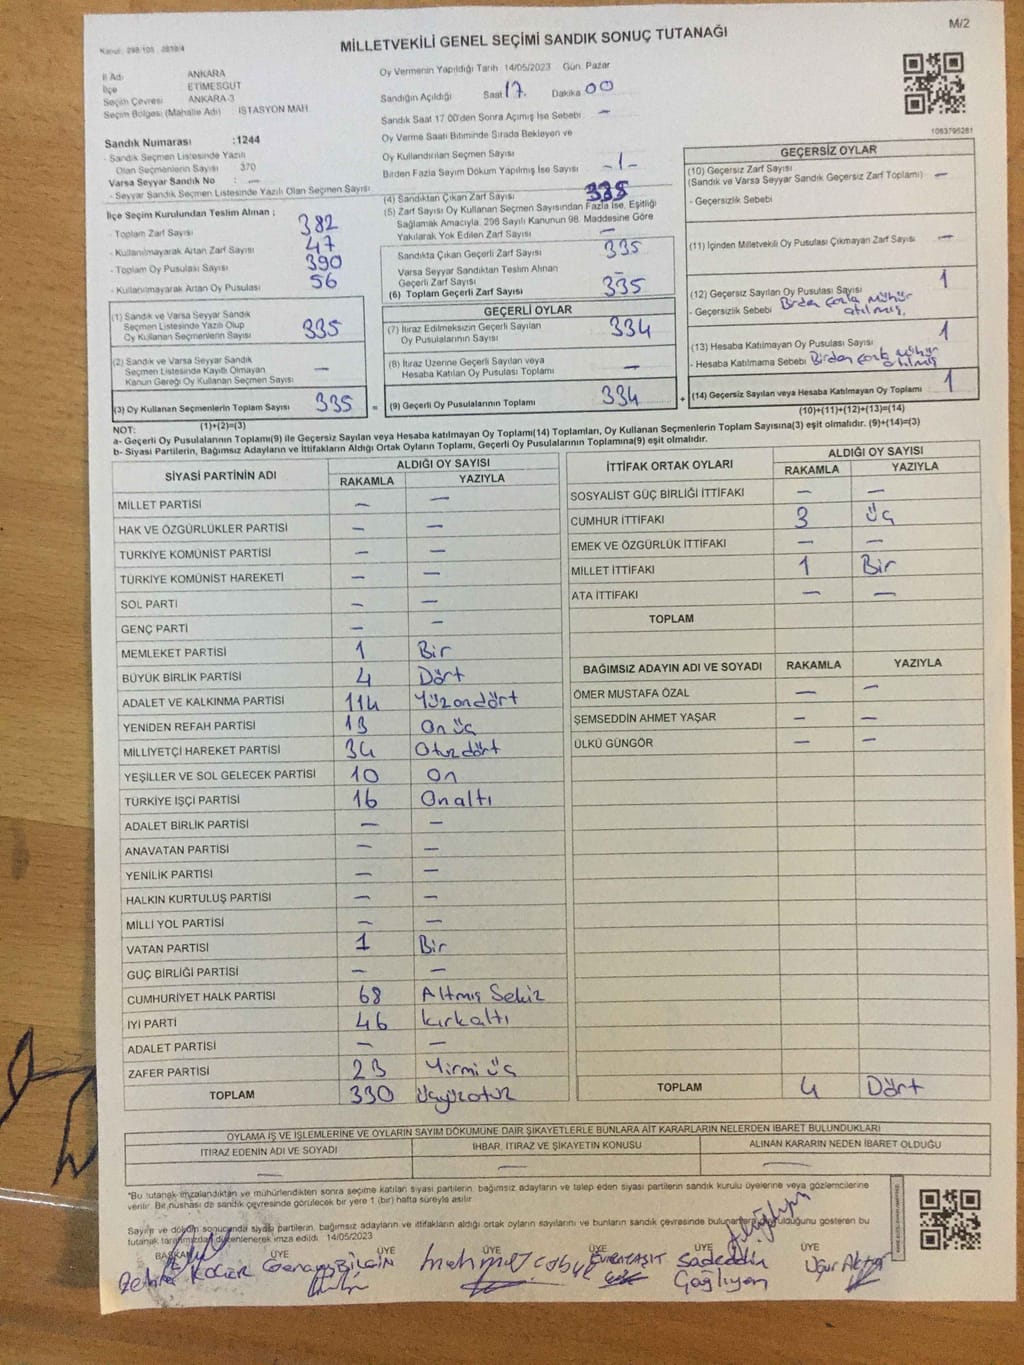 M/2
Kanun : 298/105 , 2839/4
MİLLETVEKİLİ GENEL SEÇİMİ SANDIK SONUÇ TUTANAĞI
İl Adı ANKARA
İlçe ETİMESGUT
Seçim Çevresi ANKARA-3
Seçim Bölgesi (Mahalle Adı) İSTASYON MAH.
Sandık Numarası :1244
- Sandık Seçmen Listesinde Yazılı
Olan Seçmenlerin Sayısı 370
Varsa Seyyar Sandık No : —
- Seyyar Sandık Seçmen Listesinde Yazılı Olan Seçmen Sayısı
Oy Vermenin Yapıldığı Tarih 14/05/2023 Gün: Pazar
Sandığın Açıldığı Saat 17. Dakika 00
Sandık Saat 17.00'den Sonra Açılmış İse Sebebi —
Oy Verme Saati Bitiminde Sırada Bekleyen ve
Oy Kullandırılan Seçmen Sayısı
Birden Fazla Sayım Döküm Yapılmış İse Sayısı -1-
1083795281
İlçe Seçim Kurulundan Teslim Alınan ;
- Toplam Zarf Sayısı 382
- Kullanılmayarak Artan Zarf Sayısı 47
- Toplam Oy Pusulası Sayısı 390
- Kullanılmayarak Artan Oy Pusulası 56
(1) Sandık ve Varsa Seyyar Sandık
Seçmen Listesinde Yazılı Olup
Oy Kullanan Seçmenlerin Sayısı 335
(2) Sandık ve Varsa Seyyar Sandık
Seçmen Listesinde Kayıtlı Olmayan
Kanun Gereği Oy Kullanan Seçmen Sayısı —
(3) Oy Kullanan Seçmenlerin Toplam Sayısı 335 =
(1)+(2)=(3)
(4) Sandıktan Çıkan Zarf Sayısı 335
(5) Zarf Sayısı Oy Kullanan Seçmen Sayısından Fazla İse, Eşitliği
Sağlamak Amacıyla, 298 Sayılı Kanunun 98. Maddesine Göre
Yakılarak Yok Edilen Zarf Sayısı —
Sandıkta Çıkan Geçerli Zarf Sayısı 335
Varsa Seyyar Sandıktan Teslim Alınan
Geçerli Zarf Sayısı —
(6) Toplam Geçerli Zarf Sayısı 335
GEÇERLİ OYLAR
(7) İtiraz Edilmeksizin Geçerli Sayılan
Oy Pusulalarının Sayısı 334
(8) İtiraz Üzerine Geçerli Sayılan veya
Hesaba Katılan Oy Pusulası Toplamı —
(9) Geçerli Oy Pusulalarının Toplamı 334 +
GEÇERSİZ OYLAR
(10) Geçersiz Zarf Sayısı
(Sandık ve Varsa Seyyar Sandık Geçersiz Zarf Toplamı) —
- Geçersizlik Sebebi
(11) İçinden Milletvekili Oy Pusulası Çıkmayan Zarf Sayısı —
(12) Geçersiz Sayılan Oy Pusulası Sayısı 1
- Geçersizlik Sebebi Birden fazla mühür
atılmış,
(13) Hesaba Katılmayan Oy Pusulası Sayısı 1
- Hesaba Katılmama Sebebi Birden fazla mühür
atılmış
(14) Geçersiz Sayılan veya Hesaba Katılmayan Oy Toplamı 1
(10)+(11)+(12)+(13)=(14)
NOT:
a- Geçerli Oy Pusulalarının Toplamı(9) ile Geçersiz Sayılan veya Hesaba katılmayan Oy Toplamı(14) Toplamları, Oy Kullanan Seçmenlerin Toplam Sayısına(3) eşit olmalıdır. (9)+(14)=(3)
b- Siyasi Partilerin, Bağımsız Adayların ve İttifakların Aldığı Ortak Oyların Toplamı, Geçerli Oy Pusulalarının Toplamına(9) eşit olmalıdır.
SİYASİ PARTİNİN ADI ALDIĞI OY SAYISI
RAKAMLA YAZIYLA
MİLLET PARTİSİ — —
HAK VE ÖZGÜRLÜKLER PARTİSİ — —
TÜRKİYE KOMÜNİST PARTİSİ — —
TÜRKİYE KOMÜNİST HAREKETİ — —
SOL PARTİ — —
GENÇ PARTİ — —
MEMLEKET PARTİSİ 1 Bir
BÜYÜK BİRLİK PARTİSİ 4 Dört
ADALET VE KALKINMA PARTİSİ 114 Yüzondört
YENİDEN REFAH PARTİSİ 13 On üç
MİLLİYETÇİ HAREKET PARTİSİ 34 Otuzdört
YEŞİLLER VE SOL GELECEK PARTİSİ 10 On
TÜRKİYE İŞÇİ PARTİSİ 16 Onaltı
ADALET BİRLİK PARTİSİ — —
ANAVATAN PARTİSİ — —
YENİLİK PARTİSİ — —
HALKIN KURTULUŞ PARTİSİ — —
MİLLİ YOL PARTİSİ — —
VATAN PARTİSİ 1 Bir
GÜÇ BİRLİĞİ PARTİSİ — —
CUMHURİYET HALK PARTİSİ 68 Altmış Sekiz
İYİ PARTİ 46 Kırkaltı
ADALET PARTİSİ — —
ZAFER PARTİSİ 23 Yirmi üç
TOPLAM 330 Üçyüzotuz
İTTİFAK ORTAK OYLARI ALDIĞI OY SAYISI
RAKAMLA YAZIYLA
SOSYALİST GÜÇ BİRLİĞİ İTTİFAKI — —
CUMHUR İTTİFAKI 3 Üç
EMEK VE ÖZGÜRLÜK İTTİFAKI — —
MİLLET İTTİFAKI 1 Bir
ATA İTTİFAKI — —
TOPLAM
BAĞIMSIZ ADAYIN ADI VE SOYADI RAKAMLA YAZIYLA
ÖMER MUSTAFA ÖZAL — —
ŞEMSEDDİN AHMET YAŞAR — —
ÜLKÜ GÜNGÖR — —
TOPLAM 4 Dört
OYLAMA İŞ VE İŞLEMLERİNE VE OYLARIN SAYIM DÖKÜMÜNE DAİR ŞİKAYETLERLE BUNLARA AİT KARARLARIN NELERDEN İBARET BULUNDUKLARI
İTİRAZ EDENİN ADI VE SOYADI İHBAR, İTİRAZ VE ŞİKAYETİN KONUSU ALINAN KARARIN NEDEN İBARET OLDUĞU
— — —
*Bu tutanak imzalandıktan ve mühürlendikten sonra seçime katılan siyasi partilerin, bağımsız adayların ve talep eden siyasi partilerin sandık kurulu üyelerine veya gözlemcilerine
verilir. Bir nüshası da sandık çevresinde görülecek bir yere 1 (bir) hafta süreyle asılır.
Sayım ve döküm sonucunda siyasi partilerin, bağımsız adayların ve ittifakların aldığı ortak oyların sayılarını ve bunların sandık çevresinde bulunanlara duyurulduğunu gösteren bu
tutanak tarafımızdan düzenlenerek imza edildi. 14/05/2023
BAŞKAN ÜYE ÜYE ÜYE ÜYE ÜYE ÜYE
Zehra KOCER BİLGİN Mehmet Sadeddin Uğur
Çağlıyan